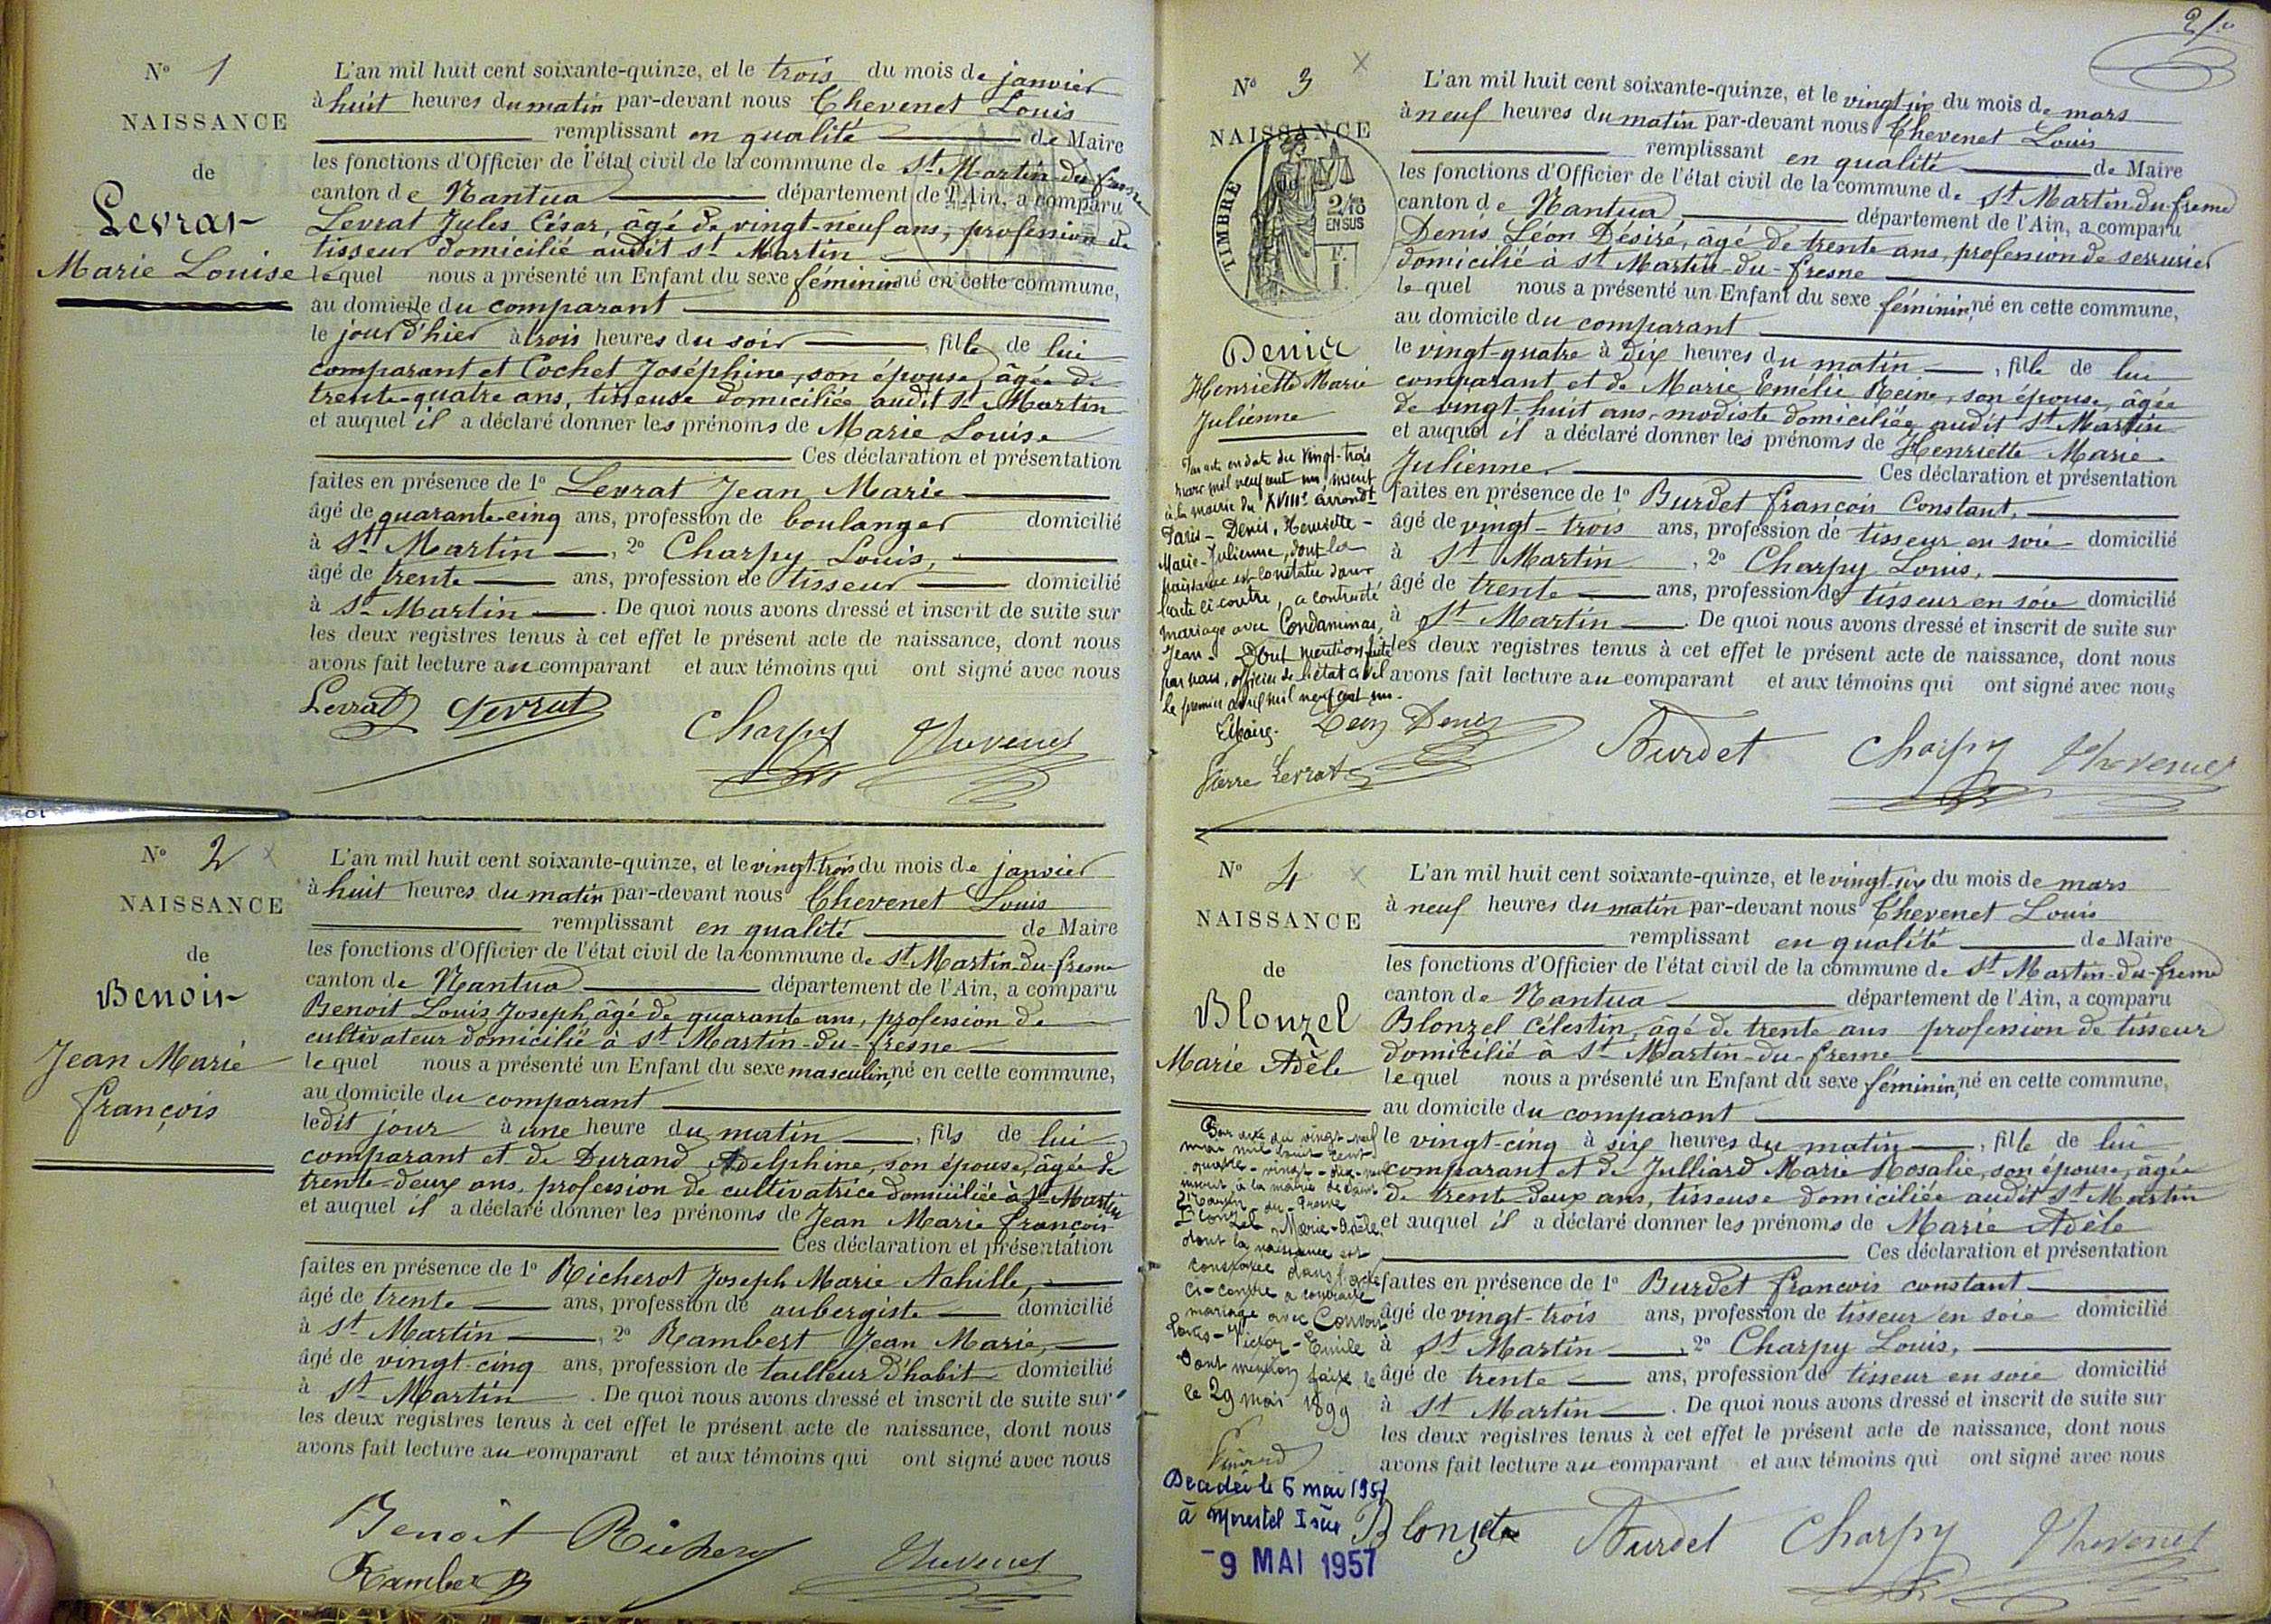 N° 1
NAISSANCE
de
Levrat
Marie Louise
L'an mil huit cent soixante-quinze, et le trois du mois de janvier
à huit heures du matin par-devant nous Chevenet Louis
remplissant en qualité de Maire
les fonctions d'Officier de l'état civil de la commune de St Martin-du-fresne
canton de Nantua département de l'Ain, a comparu
Levrat Jules César, âgé de vingt-neuf ans, profession de
tisseur domicilié audit st Martin
lequel nous a présenté un Enfant du sexe féminin né en cette commune,
au domicile du comparant
le jour d'hier à trois heures du soir, fille de lui
comparant et Cochet Joséphine, son épouse, âgée de
trente-quatre ans, tisseuse domiciliée audit St Martin
et auquel il a déclaré donner les prénoms de Marie Louise
Ces déclaration et présentation
faites en présence de 1° Levrat Jean Marie
âgé de quarante-cinq ans, profession de boulanger domicilié
à St Martin, 2° Charpy Louis,
âgé de trente ans, profession de tisseur domicilié
à St Martin. De quoi nous avons dressé et inscrit de suite sur
les deux registres tenus à cet effet le présent acte de naissance, dont nous
avons fait lecture au comparant et aux témoins qui ont signé avec nous
Levrat Levrat Charpy Chevenet
N° 2
NAISSANCE
de
Benoit
Jean Marie
françois
L'an mil huit cent soixante-quinze, et le vingt-trois du mois de janvier
à huit heures du matin par-devant nous Chevenet Louis
remplissant en qualité de Maire
les fonctions d'Officier de l'état civil de la commune de St Martin-du-fresne
canton de Nantua département de l'Ain, a comparu
Benoit Louis Joseph, âgé de quarante ans, profession de
cultivateur domicilié à St Martin-du-fresne
lequel nous a présenté un Enfant du sexe masculin, né en cette commune,
au domicile du comparant
ledit jour à une heure du matin, fils de lui
comparant et de Durand Adelphine, son épouse, âgée de
trente-deux ans, profession de cultivatrice domiciliée à St Martin
et auquel il a déclaré donner les prénoms de Jean Marie françois
Ces déclaration et présentation
faites en présence de 1° Richerot Joseph Marie Achille,
âgé de trente ans, profession de aubergiste domicilié
à St Martin, 2° Rambert Jean Marie,
âgé de vingt-cinq ans, profession de tailleur d'habit domicilié
à St Martin. De quoi nous avons dressé et inscrit de suite sur
les deux registres tenus à cet effet le présent acte de naissance, dont nous
avons fait lecture au comparant et aux témoins qui ont signé avec nous
Benoit Richerot
Rambert Chevenet
N° 3
NAISSANCE
de
TIMBRE
2/10
EN SUS
Denis
Henriette Marie
Julienne
Par acte en date du vingt-trois
mars mil neuf cent un, inscrit
à la mairie du XVIIIe arrondt
Paris - Denis, Henriette -
Marie-Julienne, dont la
naissance est constatée dans
l'acte ci-contre, a contracté
mariage avec Condaminas,
Jean. Dont mention faite
par nous, officier de l'état civil
le premier avril mil neuf cent un.
Le Maire.
Pierre Levrat
L'an mil huit cent soixante-quinze, et le vingt-six du mois de mars
à neuf heures du matin par-devant nous Chevenet Louis
remplissant en qualité de Maire
les fonctions d'Officier de l'état civil de la commune de St Martin-du-fresne
canton de Nantua département de l'Ain, a comparu
Denis Léon Désiré, âgé de trente ans, profession de serrurier
domicilié à St Martin-du-fresne
lequel nous a présenté un Enfant du sexe féminin, né en cette commune,
au domicile du comparant
le vingt-quatre à dix heures du matin, fille de lui
comparant et de Marie Emélie Reine, son épouse, âgée
de vingt-huit ans, modiste domiciliée audit St Martin
et auquel il a déclaré donner les prénoms de Henriette Marie
Julienne. Ces déclaration et présentation
faites en présence de 1° Burdet françois Constant,
âgé de vingt-trois ans, profession de tisseur en soie domicilié
à St Martin, 2° Charpy Louis,
âgé de trente ans, profession de tisseur en soie domicilié
à St Martin. De quoi nous avons dressé et inscrit de suite sur
les deux registres tenus à cet effet le présent acte de naissance, dont nous
avons fait lecture au comparant et aux témoins qui ont signé avec nous
Léon Denis Burdet Charpy Chevenet
N° 4
NAISSANCE
de
Blonzel
Marie Adèle
Par acte du vingt-neuf
mai mil huit cent
quatre-vingt-dix-neuf
inscrit à la mairie de Saint
Martin-du-Fresne
Blonzel Marie-Adèle,
dont la naissance est
constatée dans l'acte
ci-contre a contracté
mariage avec
Louis-Victor-Emile
Dont mention faite le
le 29 mai 1899
Décédée le 6 mai 1957
à Morestel Isère
-9 MAI 1957
L'an mil huit cent soixante-quinze, et le vingt-six du mois de mars
à neuf heures du matin par-devant nous Chevenet Louis
remplissant en qualité de Maire
les fonctions d'Officier de l'état civil de la commune de St Martin-du-fresne
canton de Nantua département de l'Ain, a comparu
Blonzel Célestin, âgé de trente ans profession de tisseur
domicilié à St Martin-du-fresne
lequel nous a présenté un Enfant du sexe féminin, né en cette commune,
au domicile du comparant
le vingt-cinq à six heures du matin, fille de lui
comparant et de Julliard Marie Rosalie, son épouse, âgée
de trente deux ans, tisseuse domiciliée audit St Martin
et auquel il a déclaré donner les prénoms de Marie Adèle
Ces déclaration et présentation
faites en présence de 1° Burdet françois constant
âgé de vingt-trois ans, profession de tisseur en soie domicilié
à St Martin, 2° Charpy Louis,
âgé de trente ans, profession de tisseur en soie domicilié
à St Martin. De quoi nous avons dressé et inscrit de suite sur
les deux registres tenus à cet effet le présent acte de naissance, dont nous
avons fait lecture au comparant et aux témoins qui ont signé avec nous
Burdet Charpy Chevenet